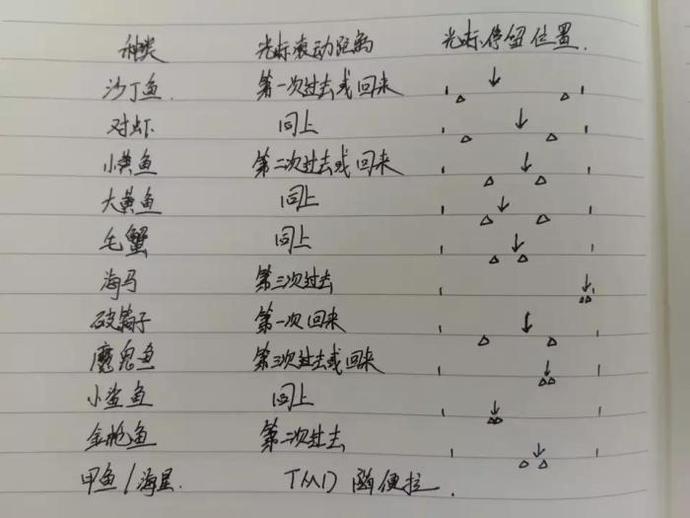 种类 光标滚动距离 光标停留位置.
沙丁鱼. 第一次过去或回来
对虾 同上
小黄鱼 第二次过去或回来
大黄鱼 同上
毛蟹 同上
海马 第三次过去
破鞋子 第一次回来
魔鬼鱼 第三次过去或回来
小鲨鱼 同上
金枪鱼 第二次过去
甲鱼/海星. TMD 随便拉.